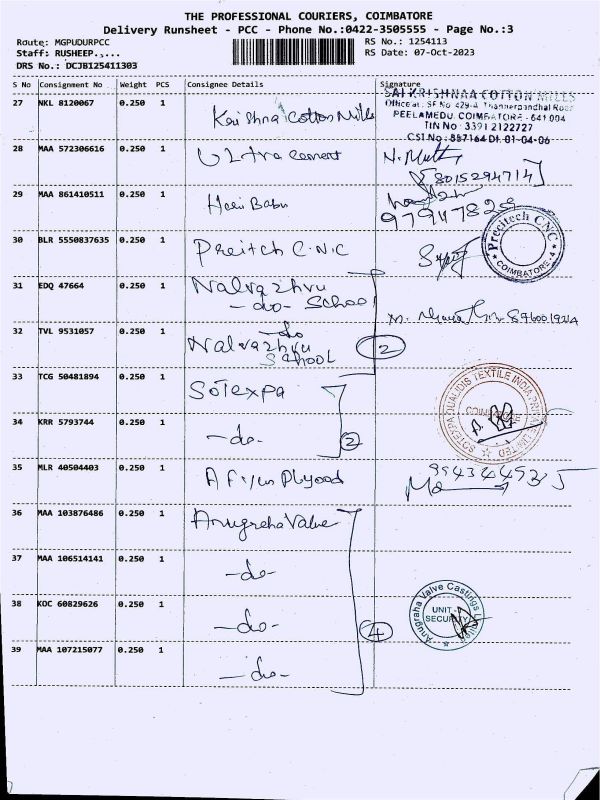 THE PROFESSIONAL COURIERS, COIMBATORE
Delivery Runsheet - PCC - Phone No.:0422-3505555 - Page No.:3
Route: MGPUDURPCC
RS No.: 1254113
Staff: RUSHEEP.....
RS Date: 07-Oct-2023
DRS No.: DCJB125411303
S No Consignment No Weight PCS Consignee Details Signature
27 NKL 8120067 0.250 1 Krishna Cotton Mills
SAI KRISHNAA COTTON MILLS
Office at: SF No 429-4
PEELAMEDU, COIMBATORE - 641 004
TIN No: 33912122727
CST No: 857164 Dt. 01-04-06
28 MAA 572306616 0.250 1 Ultra cement
[8015294714]
29 MAA 861410511 0.250 1 Hari Babu
30 BLR 5550837635 0.250 1 Preitch C.N.C
Precitech CNC
COIMBATORE-4
31 EDQ 47664 0.250 1 Nalvazhvu
-do- School
32 TVL 9531057 0.250 1 -do
Nalvazhvu
School
2
33 TCG 50481894 0.250 1 Sotexpa
SOTEXPA QUALIDIS TEXTILE INDIA PRIVATE LIMITED
COIMBATORE
34 KRR 5793744 0.250 1 -do-
2
35 MLR 40504403 0.250 1
36 MAA 103876486 0.250 1 Anugraha Valve
37 MAA 106514141 0.250 1 -do-
38 KOC 60829626 0.250 1 -do-
4
Anugraha Valve Castings Limited
UNIT-
SECURITY
39 MAA 107215077 0.250 1 -do-